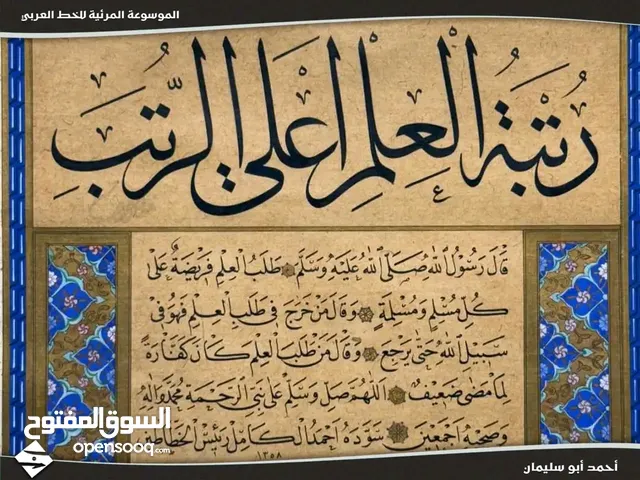 الموسوعة المرئية للخط العربي
رُتْبَةُ الْعِلْمِ أَعْلَى الرُّتَبِ
قَالَ رَسُولُ اللّٰهِ صَلَّى اللّٰهُ عَلَيْهِ وَسَلَّمَ طَلَبُ الْعِلْمِ فَرِيضَةٌ عَلَى
كُلِّ مُسْلِمٍ وَمُسْلِمَةٍ وَقَالَ مَنْ خَرَجَ فِي طَلَبِ الْعِلْمِ فَهُوَ فِي
سَبِيلِ اللّٰهِ حَتَّى رَجَعَ وَقَالَ مَنْ طَلَبَ الْعِلْمَ كَانَ كَفَّارَةً
لِمَا مَضَى ضَعِيفٌ اَللّٰهُمَّ صَلِّ وَسَلِّمْ عَلَى نَبِيِّ الرَّحْمَةِ مُحَمَّدٍ وَآلِهِ
وَصَحْبِهِ أَجْمَعِينَ سَوَّدَهُ أَحْمَدُ الْكَامِلُ رَئِيسُ الْخَطَّاطِينَ
١٣٥٨
السوق المفتوح
opensooq.com
أحمد أبو سليمان